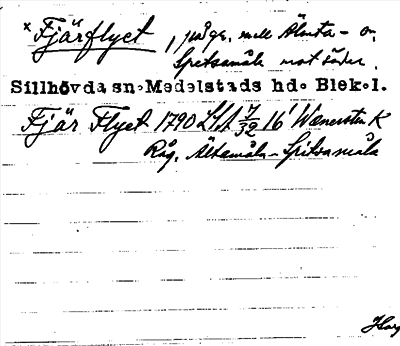 *Fjärflyet, judgr. mell Älmta- o.
Spetsamåla mot söder.
Sillhövda sn. Medelstads hd. Blek.l.
Fjär Flyet 1790 LSA 7/32 16 Wænersten K
Råg. Ältamåla - Spitsamåla